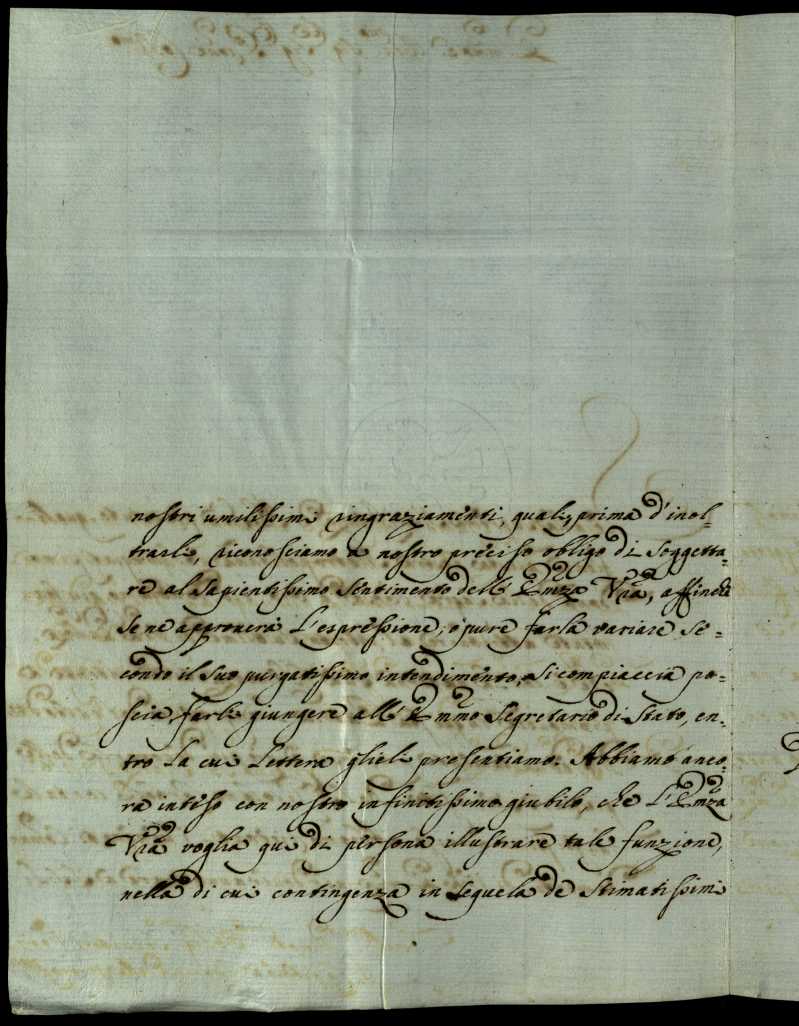 nostri umilissimi ringraziamenti, quali, prima d'inol-
trarli, riconosciamo a nostro preciso obligo di soggetta-
re al sapientissimo sentimento dell' Emza Vra, affinche
se ne approverà l'espressione, ò pure farla variare se-
condo il suo purgatissimo intendimento, si compiaccia po-
scia farli giungere all' Emmo Segretario di Stato, en-
tro la cui Lettera glieli presentiamo. Abbiamo anco-
ra inteso con nostro infinitissimo giubilo, che l'Emza
Vra voglia qui di persona illustrare tale funzione,
nella di cui contingenza in sequela de stimatissimi